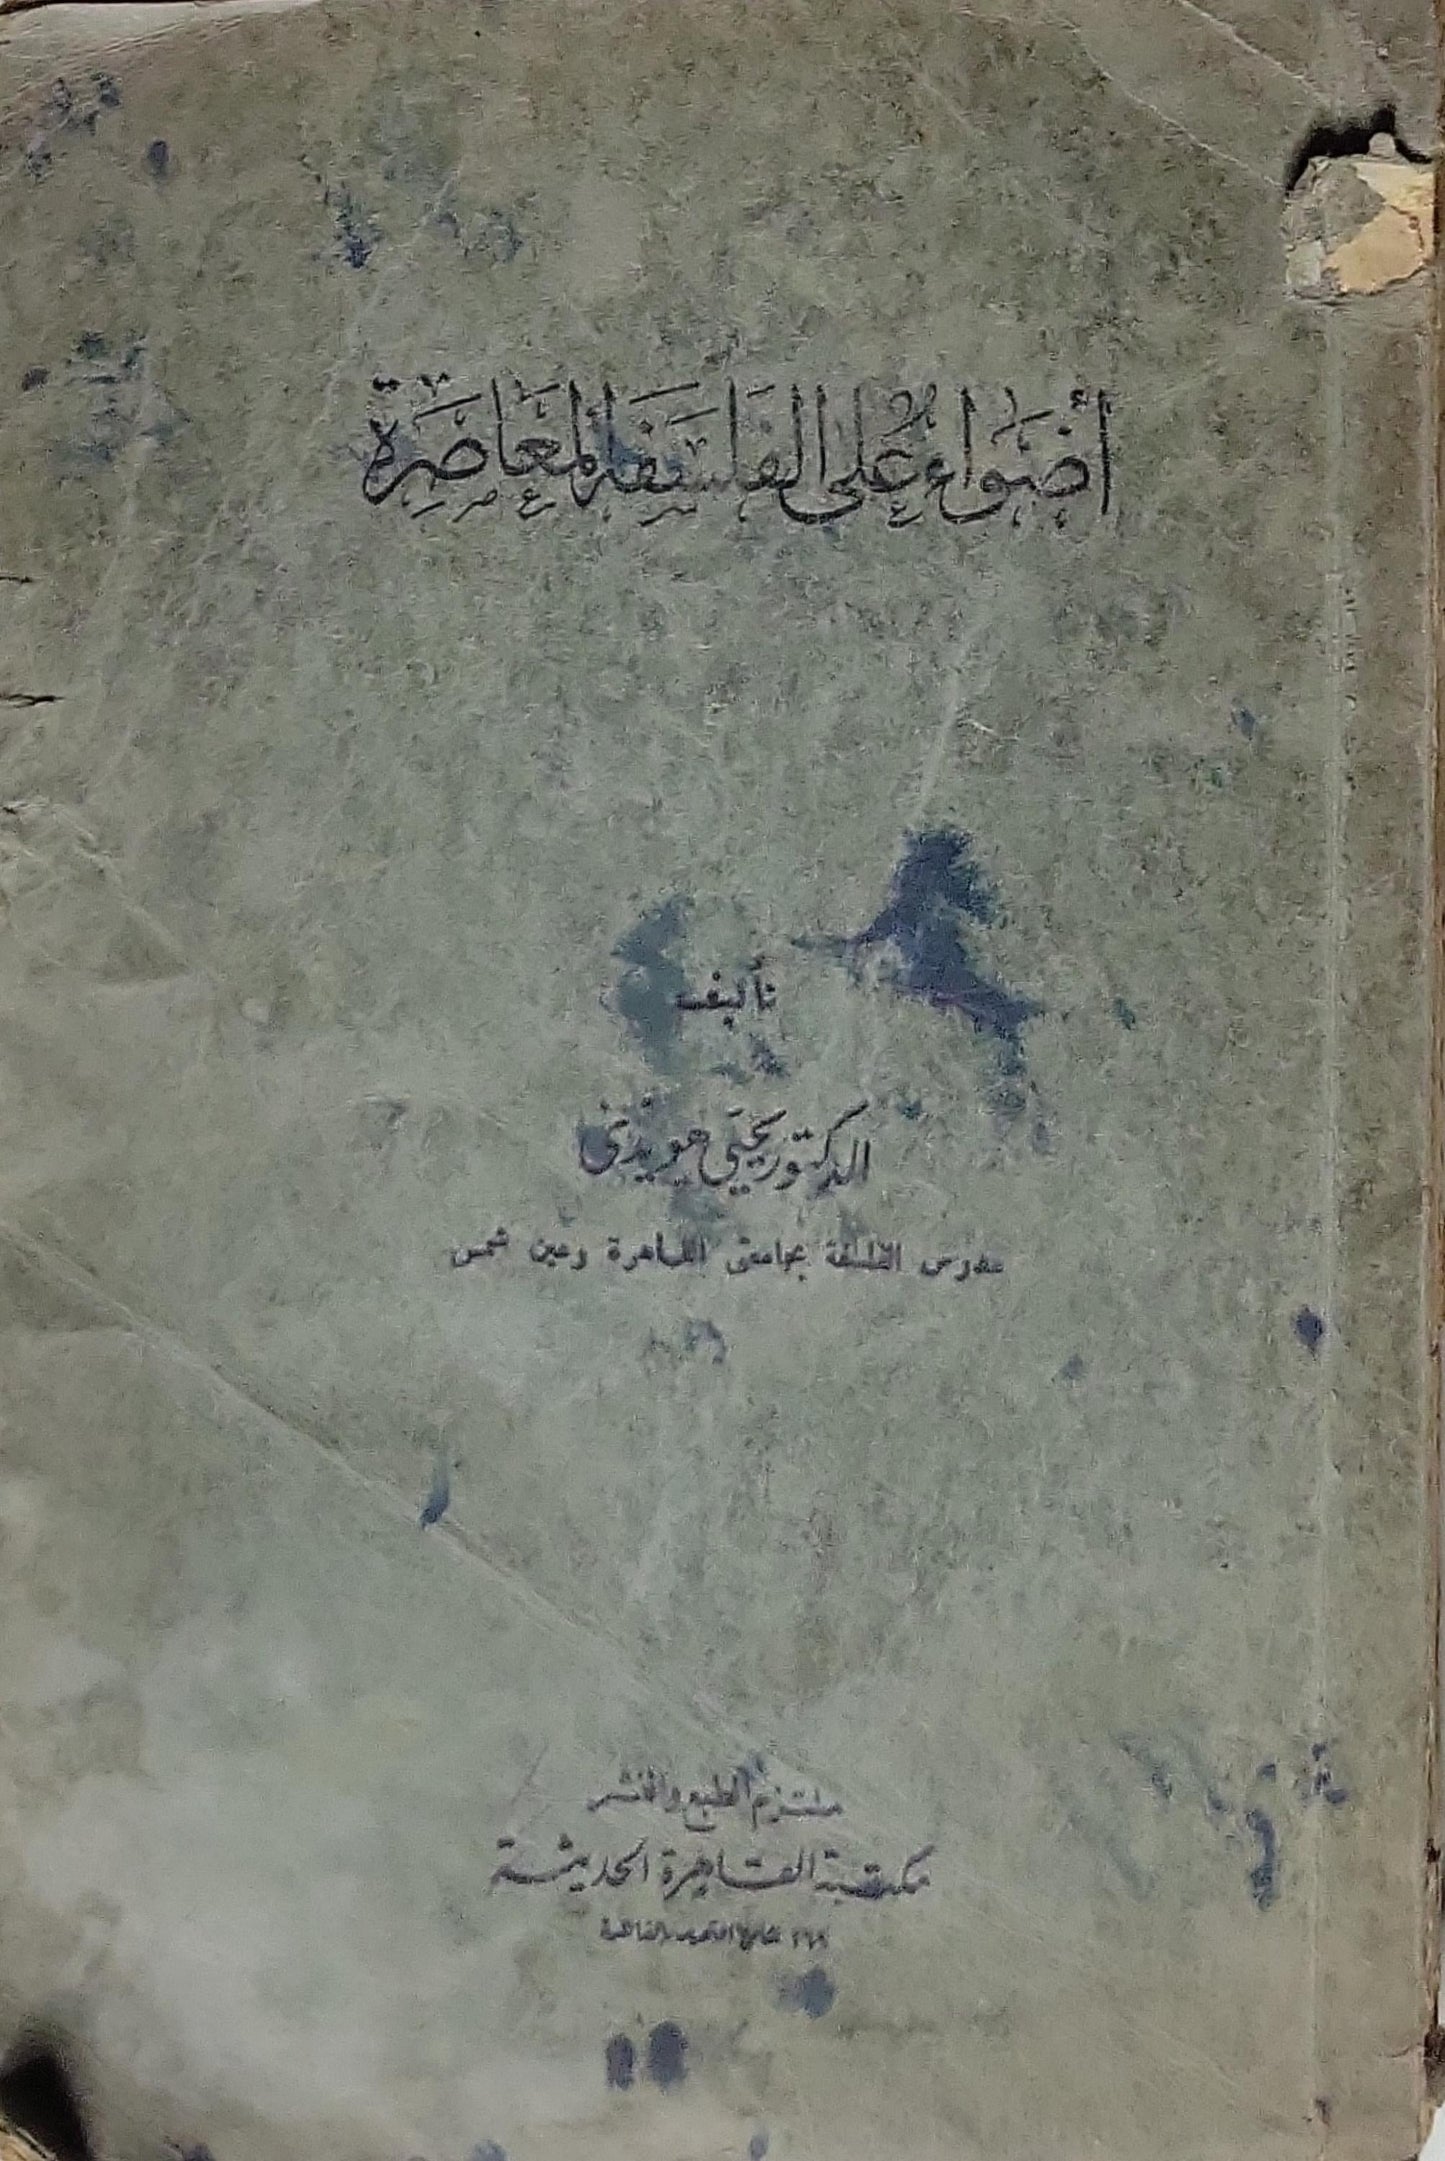 أضواء على الفلسفة المعاصرة
تأليف
الدكتور يحيى هويدى
مدرس الفلسفة بجامعتى القاهرة وعين شمس
ملتزم الطبع والنشر
مكتبة القاهرة الحديثة
شارع التحرير بالقاهرة